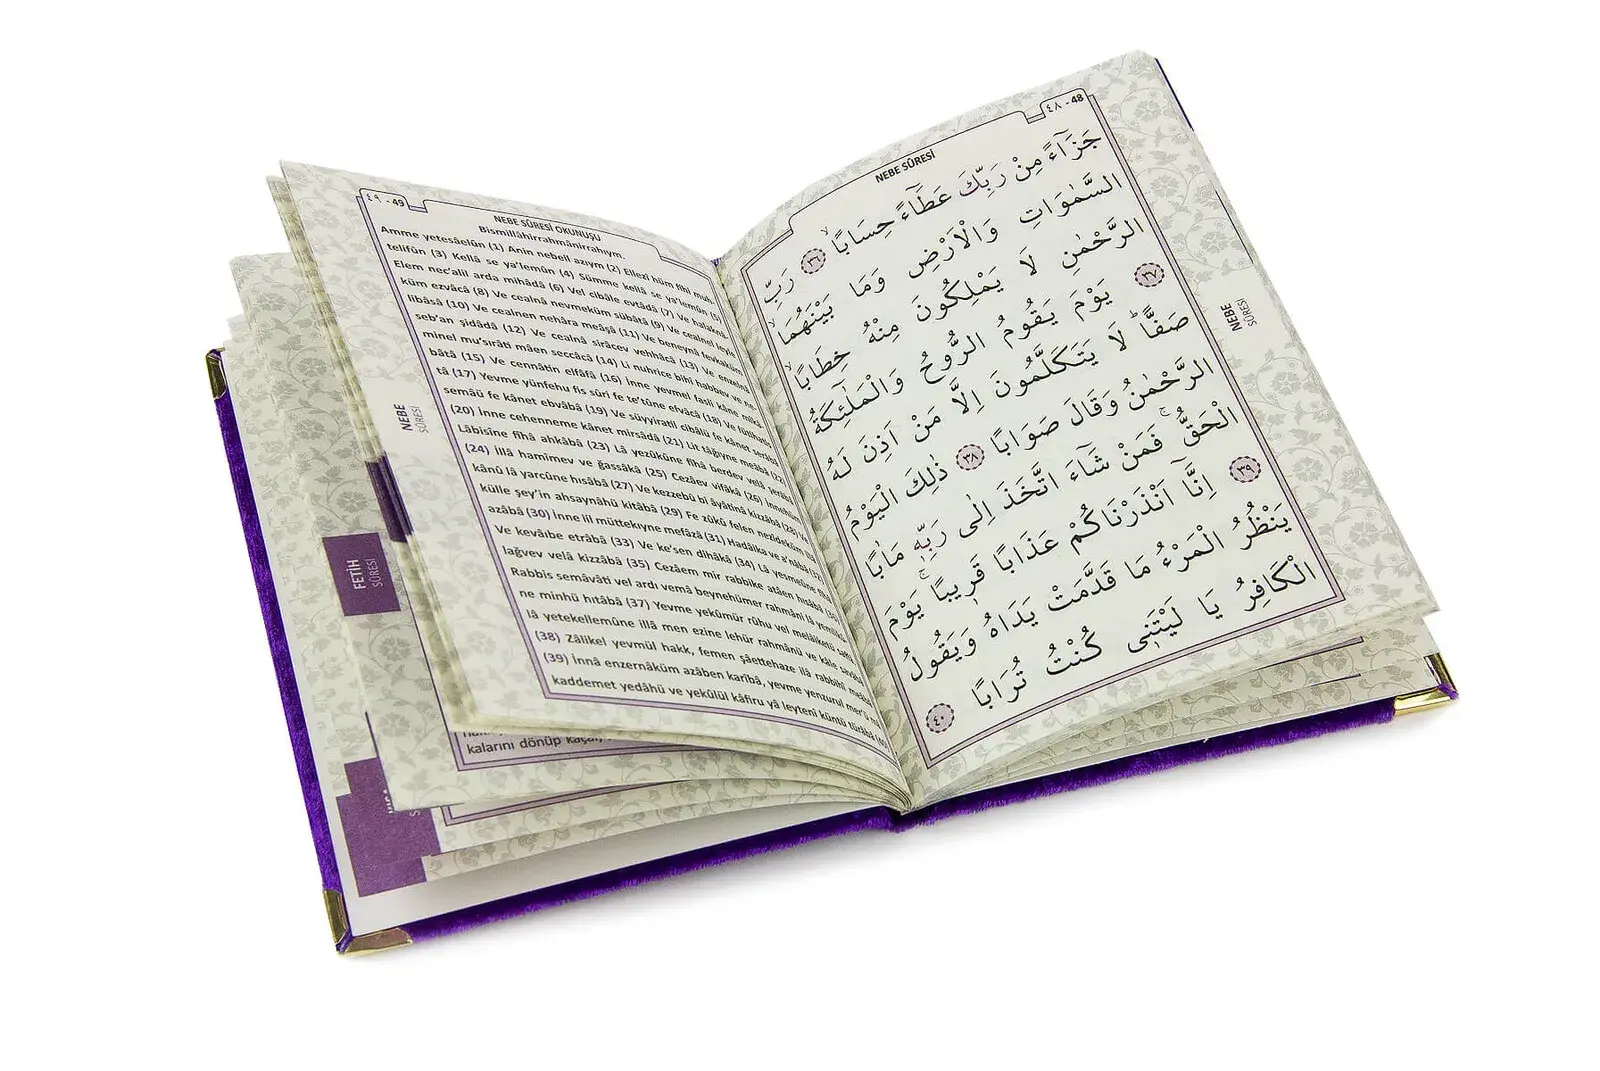 ٤٨ - 48
NEBE SÛRESİ
جَزَٓاءً مِنْ رَبِّكَ عَطَٓاءً حِسَابًاۙ ﴿٣٦﴾ رَبِّ
السَّمٰوَاتِ وَالْاَرْضِ وَمَا بَيْنَهُمَا
الرَّحْمٰنِ لَا يَمْلِكُونَ مِنْهُ خِطَابًاۚ
﴿٣٧﴾ يَوْمَ يَقُومُ الرُّوحُ وَالْمَلٰٓئِكَةُ
صَفًّاۜ لَا يَتَكَلَّمُونَ اِلَّا مَنْ اَذِنَ لَهُ
الرَّحْمٰنُ وَقَالَ صَوَابًا ﴿٣٨﴾ ذٰلِكَ الْيَوْمُ
الْحَقُّۚ فَمَنْ شَٓاءَ اتَّخَذَ اِلٰى رَبِّهِ مَاٰبًا
﴿٣٩﴾ اِنَّٓا اَنْذَرْنَاكُمْ عَذَابًا قَرِيبًاۚ يَوْمَ
يَنْظُرُ الْمَرْءُ مَا قَدَّمَتْ يَدَاهُ وَيَقُولُ
الْكَافِرُ يَا لَيْتَنِي كُنْتُ تُرَابًا ﴿٤٠﴾
NEBE
SÛRESİ
٤٩ - 49
NEBE SÛRESİ OKUNUŞU
Bismillâhirrahmânirrahıym.
Amme yetesâelûn (1) Anin nebeil azıym (2) Ellezî hüm fîhi muh-
telifûn (3) Kellâ se ya'lemûn (4) Sümme kellâ se ya'lemûn (5)
Elem nec'alil arda mihâdâ (6) Vel cibâle evtâdâ (7) Ve halaknâ-
küm ezvâcâ (8) Ve cealnâ nevmeküm sübâtâ (9) Ve cealnel leyle
libâsâ (10) Ve cealnen nehâra meâşâ (11) Ve beneynâ fevkaküm
seb'an şidâdâ (12) Ve cealnâ sirâcev vehhâcâ (13) Ve enzelnâ
minel mu'sırâti mâen seccâcâ (14) Li nuhrice bihî habbev ve ne-
bâtâ (15) Ve cennâtin elfâfâ (16) İnne yevmel fasli kâne mîkâ-
tâ (17) Yevme yünfehu fis sûri fe te'tûne efvâcâ (18) Ve fütihatis
semâü fe kânet ebvâbâ (19) Ve süyyiratil cibâlü fe kânet serâbâ
(20) İnne cehenneme kânet mirsâdâ (21) Lit tâğıyne meâbâ (22)
Lâbisîne fîhâ ahkâbâ (23) Lâ yezûkûne fîhâ berdev velâ şerâbâ
(24) İllâ hamîmev ve ğassâkâ (25) Cezâev vifâkâ (26) İnnehüm
kânû lâ yarcûne hısâbâ (27) Ve kezzebû bi âyâtinâ kizzâbâ (28) Ve
külle şey'in ahsaynâhü kitâbâ (29) Fe zûkû felen nezîdeküm illâ
azâbâ (30) İnne lil müttekıyne mefâzâ (31) Hadâika ve a'nâbâ (32)
Ve kevâıbe etrâbâ (33) Ve ke'sen dihâkâ (34) Lâ yesmeûne fîhâ
lağvev velâ kizzâbâ (35) Cezâem mir rabbike atâen hısâbâ (36)
Rabbis semâvâti vel ardı vemâ beynehümer rahmâni lâ yemlikû-
ne minhü hıtâbâ (37) Yevme yekûmür rûhu vel melâiketü saffâ
lâ yetekellemûne illâ men ezine lehür rahmânü ve kâle savâbâ
(38) Zâlikel yevmül hakk, femen şâettehaze ilâ rabbihî meâbâ
(39) İnnâ enzernâküm azâben karîbâ, yevme yenzurul mer'ü mâ
kaddemet yedâhü ve yekûlül kâfiru yâ leytenî küntü türâbâ (40)
NEBE
SÛRESİ
FETİH
SÛRESİ
kalarını dönüp kaçar